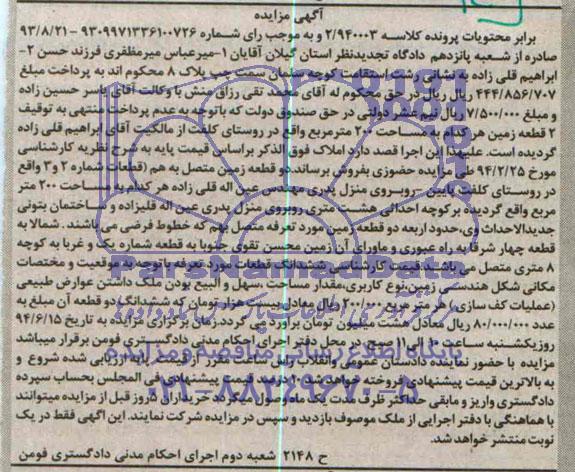 آگهی مزایده
برابر محتویات پرونده کلاسه ۲/۹۴۰۰۰۳ و به موجب رای شماره ۹۳۰۹۹۷۱۳۳۶۱۰۰۷۲۶ - ۹۳/۸/۲۱
صادره از شعبه پانزدهم دادگاه تجدیدنظر استان گیلان آقایان ۱-میرعباس میرمظفری فرزند حسن ۲-
ابراهیم قلی زاده به نشانی رشت استقامت کوچه سلمان سمت چپ پلاک ۸ محکوم اند به پرداخت مبلغ
۴۴۴/۸۵۶/۷۰۷ ریال در حق محکوم له آقای محمد تقی رزاق منش با وکالت آقای یاسر حسین زاده
و مبلغ ۷/۵۰۰/۰۰۰ ریال نیم عشر دولتی در حق صندوق دولت که باتوجه به عدم پرداخت منتهی به توقیف
۲ قطعه زمین هر کدام به مساحت ۲۰۰ مترمربع واقع در روستای کلفت از مالکیت آقای ابراهیم قلی زاده
گردیده است. علیهذا این اجرا قصد دارد املاک فوق الذکر براساس قیمت پایه به شرح نظریه کارشناسی
مورخ ۹۴/۲/۲۵ طی مزایده حضوری بفروش برساند.دو قطعه زمین متصل به هم (قطعات شماره ۲ و۳ واقع
در روستای کلفت پایین -روبروی منزل پدری مهندس عین اله قلی زاده هر کدام به مساحت ۲۰۰ متر
مربع واقع گردیده برکوچه احداثی هشت متری روبروی منزل پدری عین اله قلیزاده و ساختمان بتونی
جدیدالاحداث وی،حدود اربعه دو قطعه زمین مورد تعرفه متصل بهم که خطوط فرضی می باشند. شمالا به
قطعه چهار شرقا به راه عبوری و ماورای آن زمین محسن تقوی جنوبا به قطعه شماره یک و غربا به کوچه
۸ متری متصل می باشد. قیمت کارشناسی ششدانگ قطعات مورد تعرفه باتوجه به موقعیت و مختصات
مکانی شکل هندسی زمین،نوع کاربری،مقدار مساحت ،سهل و البیع بودن ملک داشتن عوارض طبیعی
(عملیات کف سازی) هر متر مربع ۲۰۰/۰۰۰ ریال معادل بیست هزار تومان که ششدانگ دو قطعه آن مبلغ به
عدد ۸۰/۰۰۰/۰۰۰ ریال معادل هشت میلیون تومان برآورد می گردد.زمان برگزاری مزایده به تاریخ ۹۴/۶/۱۵
روز یکشنبه ساعت ۱۰ الی ۱۱ صبح در محل دفتر اجرای احکام مدنی دادگستری فومن برقرار میباشد
مزایده با حضور نماینده دادستان عمومی وانقلاب راس ساعت مقرر از قیمت پایه ارزیابی شده شروع و
به بالاترین قیمت پیشنهادی فروخته خواهد شد درصد قیمت پیشنهادی فی المجلس بحساب سپرده
دادگستری واریز و مابقی حداکثر ظرف مدت یک ماه وصول میگردد خریداران ۵ روز قبل از مزایده میتوانند
با هماهنگی با دفتر اجرایی از ملک موصوف بازدید و سپس در مزایده شرکت نمایند. این آگهی فقط در یک
نوبت منتشر خواهد شد.
ح ۲۱۴۸ شعبه دوم اجرای احکام مدنی دادگستری فومن
ParsNamadData
پایگاه اطلاع رسانی مناقصه و مزایده